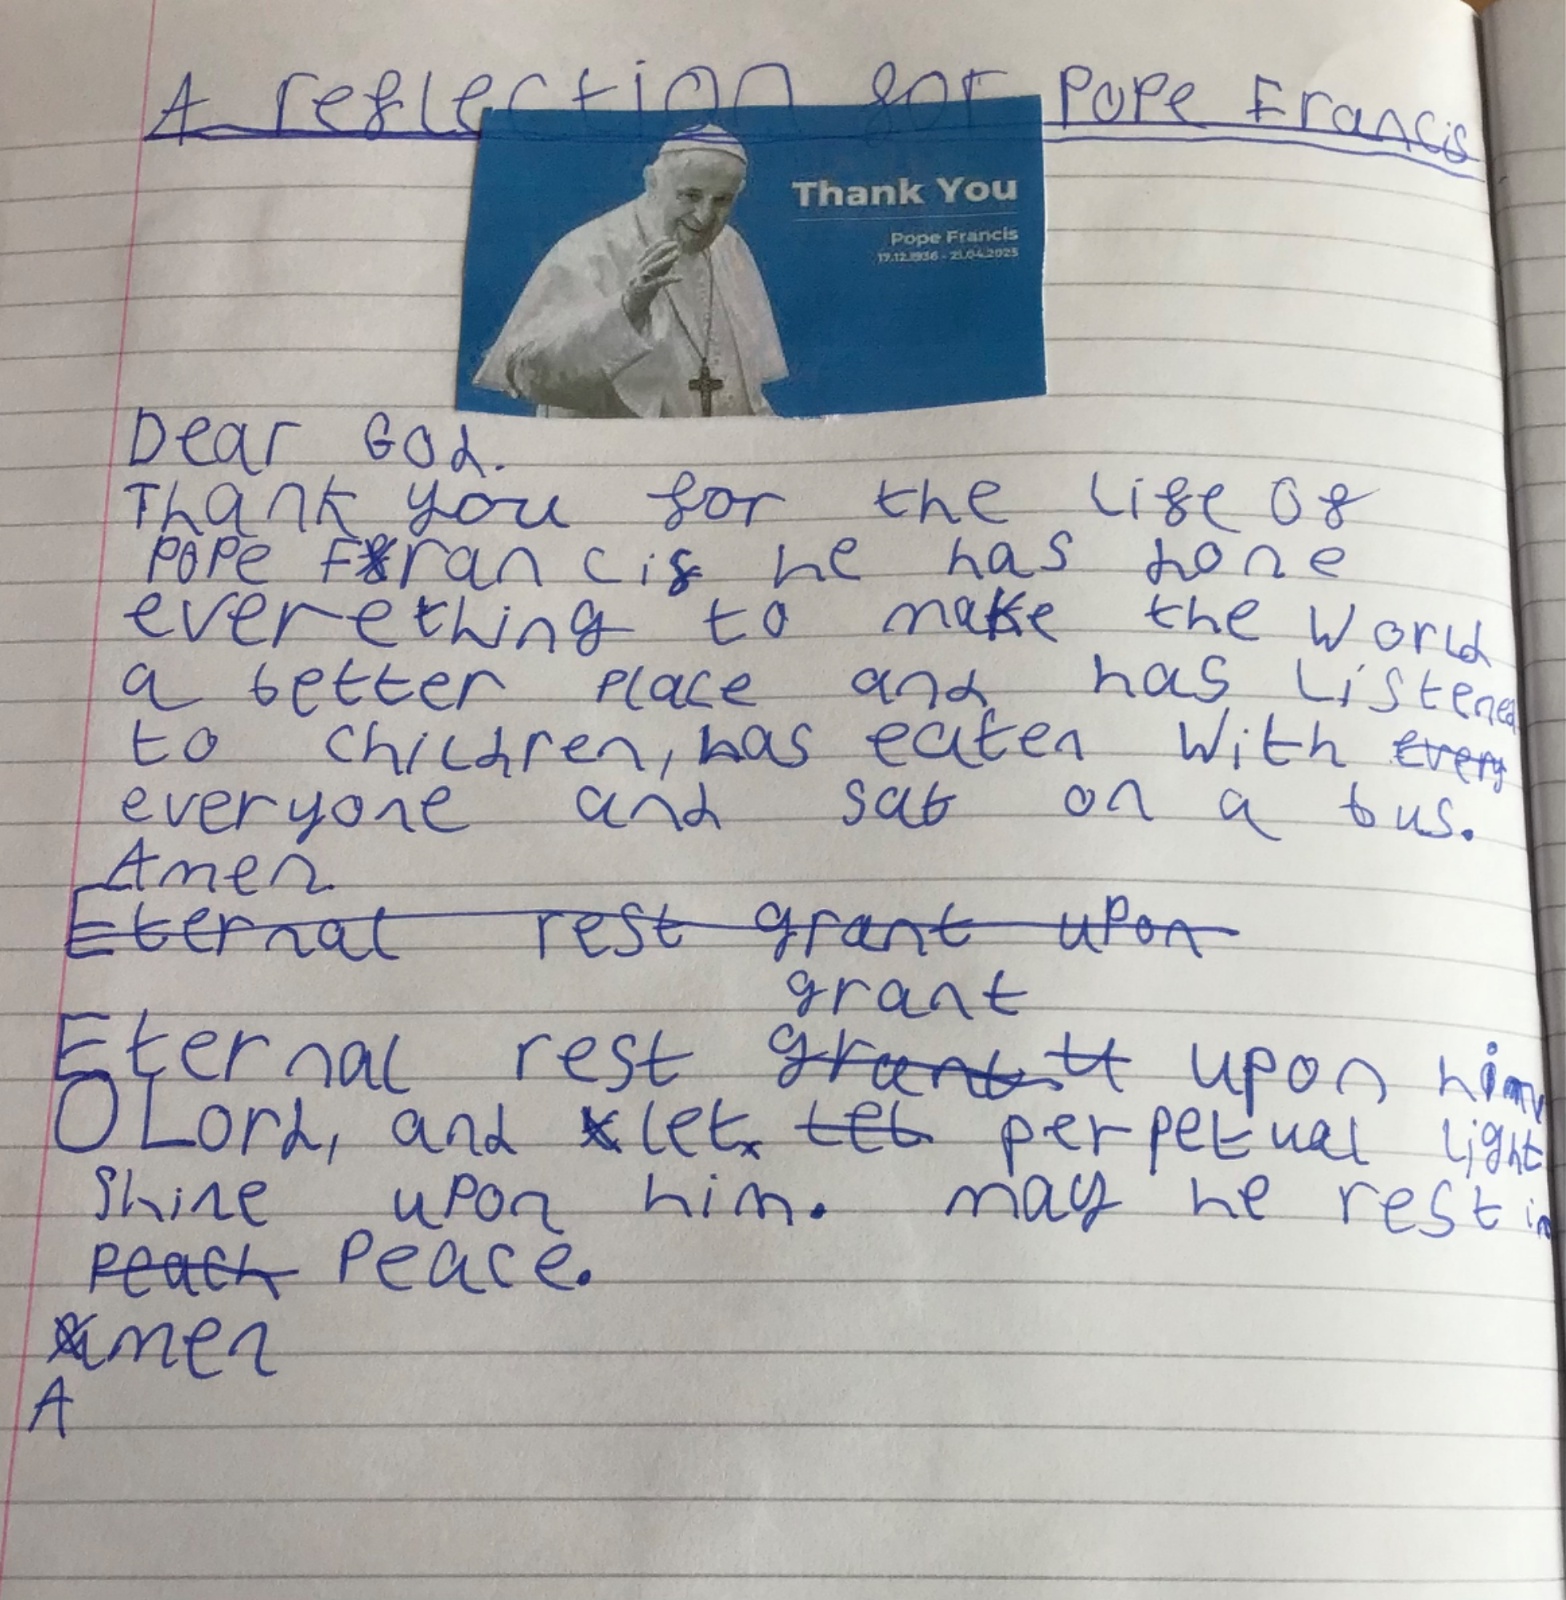 A reflection for Pope Francis
Thank You
Pope Francis
17.12.1936 - 21.04.2025
Dear God.
Thank you for the life of
Pope Francis he has done
everething to make the World
a better place and has Listened
to children, has eaten With every
everyone and sat on a bus.
Amen
Eternal rest grant upon
grant
Eternal rest grant tt upon him
O Lord, and let tet perpetual light
Shine upon him. may he rest in
peach Peace.
Amen
A